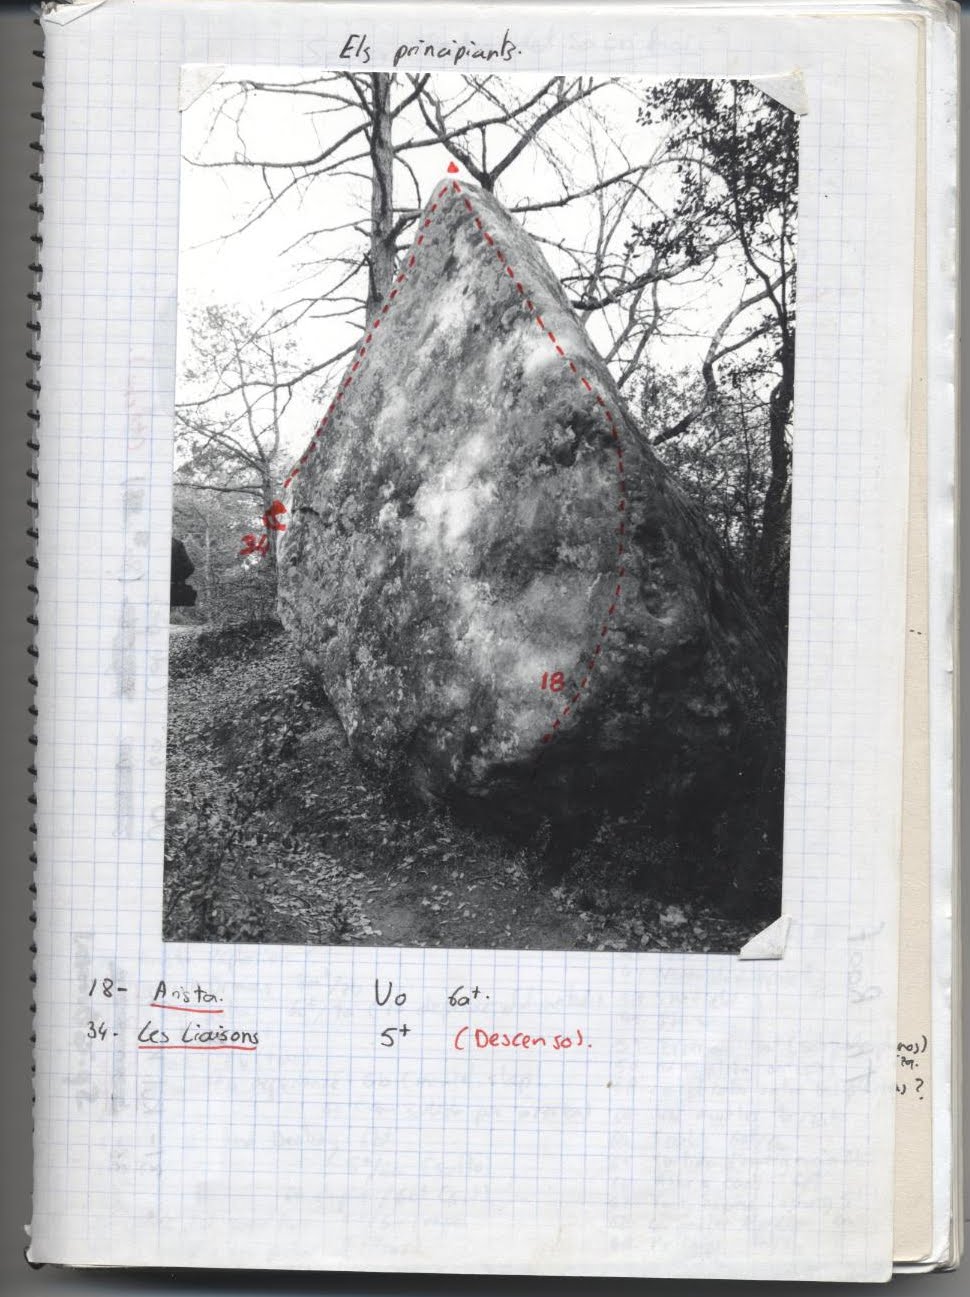 Els principiants.
34
18
18- Arista. V0 6a+.
34- Les Liaisons 5+ (Descenso).